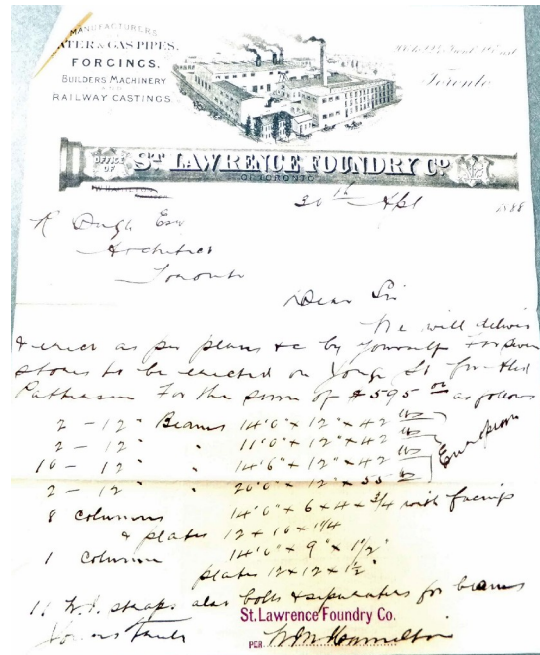 MANUFACTURERS
WATER & GAS PIPES.
FORGINGS.
BUILDERS MACHINERY
AND
RAILWAY CASTINGS
Toronto
OFFICE OF
ST LAWRENCE FOUNDRY CO
OF TORONTO
W. HAMILTON
30th Apl 1888
Esq
Architect
Toronto
Dear Sir
We will deliver
& erect as per plans &c by yourself For seven
stores to be erected on Yonge St for
Patterson For the sum of $595 00 as follows
2 - 12" Beams 14'0" x 12" x 42 lbs
2 - 12" " 11'0" x 12" x 42 lbs
10 - 12" " 14'6" x 12" x 42 lbs
2 - 12" " 20'0" x 12" x 55 lbs
8 columns 14'0" x 6 x 4 x 3/4 with facings
& plates 12 x 10 x 1 1/4
1 column 14'0" x 9" x 1 1/2"
plates 12 x 12 x 1 1/2"
11 W.I. straps also bolts & separators for beams
Yours truly
St. Lawrence Foundry Co.
PER W Hamilton